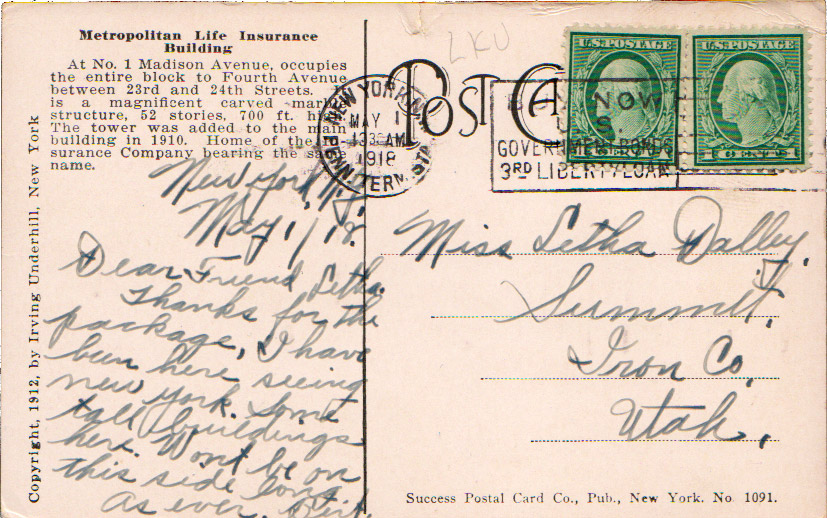 Metropolitan Life Insurance
Building
At No. 1 Madison Avenue, occupies
the entire block to Fourth Avenue
between 23rd and 24th Streets. It
is a magnificent carved marble
structure, 52 stories, 700 ft. high.
The tower was added to the main
building in 1910. Home of the
surance Company bearing the same
name.
Copyright, 1912, by Irving Underhill, New York
LKU
POST CA
NEW YORK, N.Y.
MAY 1
AM
1918
PENN. TERM. STA.
NOW
U.S.
GOVERNMENT BONDS
3RD LIBERTY LOAN
U.S. POSTAGE
U.S. POSTAGE
New York N.Y.
May 1/18.
Dear Friend Letha.
Thanks for the
package, I have
been here seeing
new york. Some
tall buildings
here. Wont be on
this side long
As ever,
Miss Letha Dalley,
Summit,
Iron Co,
Utah,
Success Postal Card Co., Pub., New York. No. 1091.